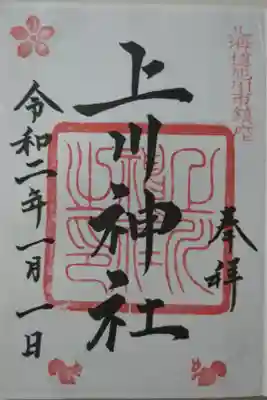 北海道旭川市鎮座
奉拝
上川神社
令和二年一月一日